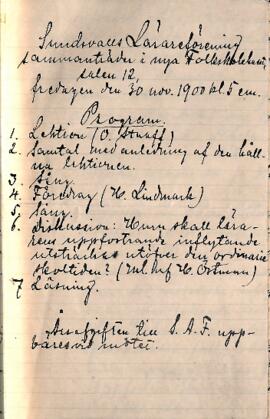 Sundsvalls Lärareförening
sammanträder i nya Folkskolehuset
salen 12,
fredagen den 30 nov. 1900 kl 5 em.
Program.
1. Lektion (O. Staaff)
2. Samtal med anledning af den håll-
na lektionen.
3. Sång.
4. Föredrag (H. Lindmark)
5. Sång.
6. Diskussion: Huru skall lära-
rens uppfostrande inflytande
utsträckas utöfver den ordinarie
skoltiden? (H. Östman)
7 Läsning.
Årsafgiften till S. A. F. upp-
bäres vid mötet.